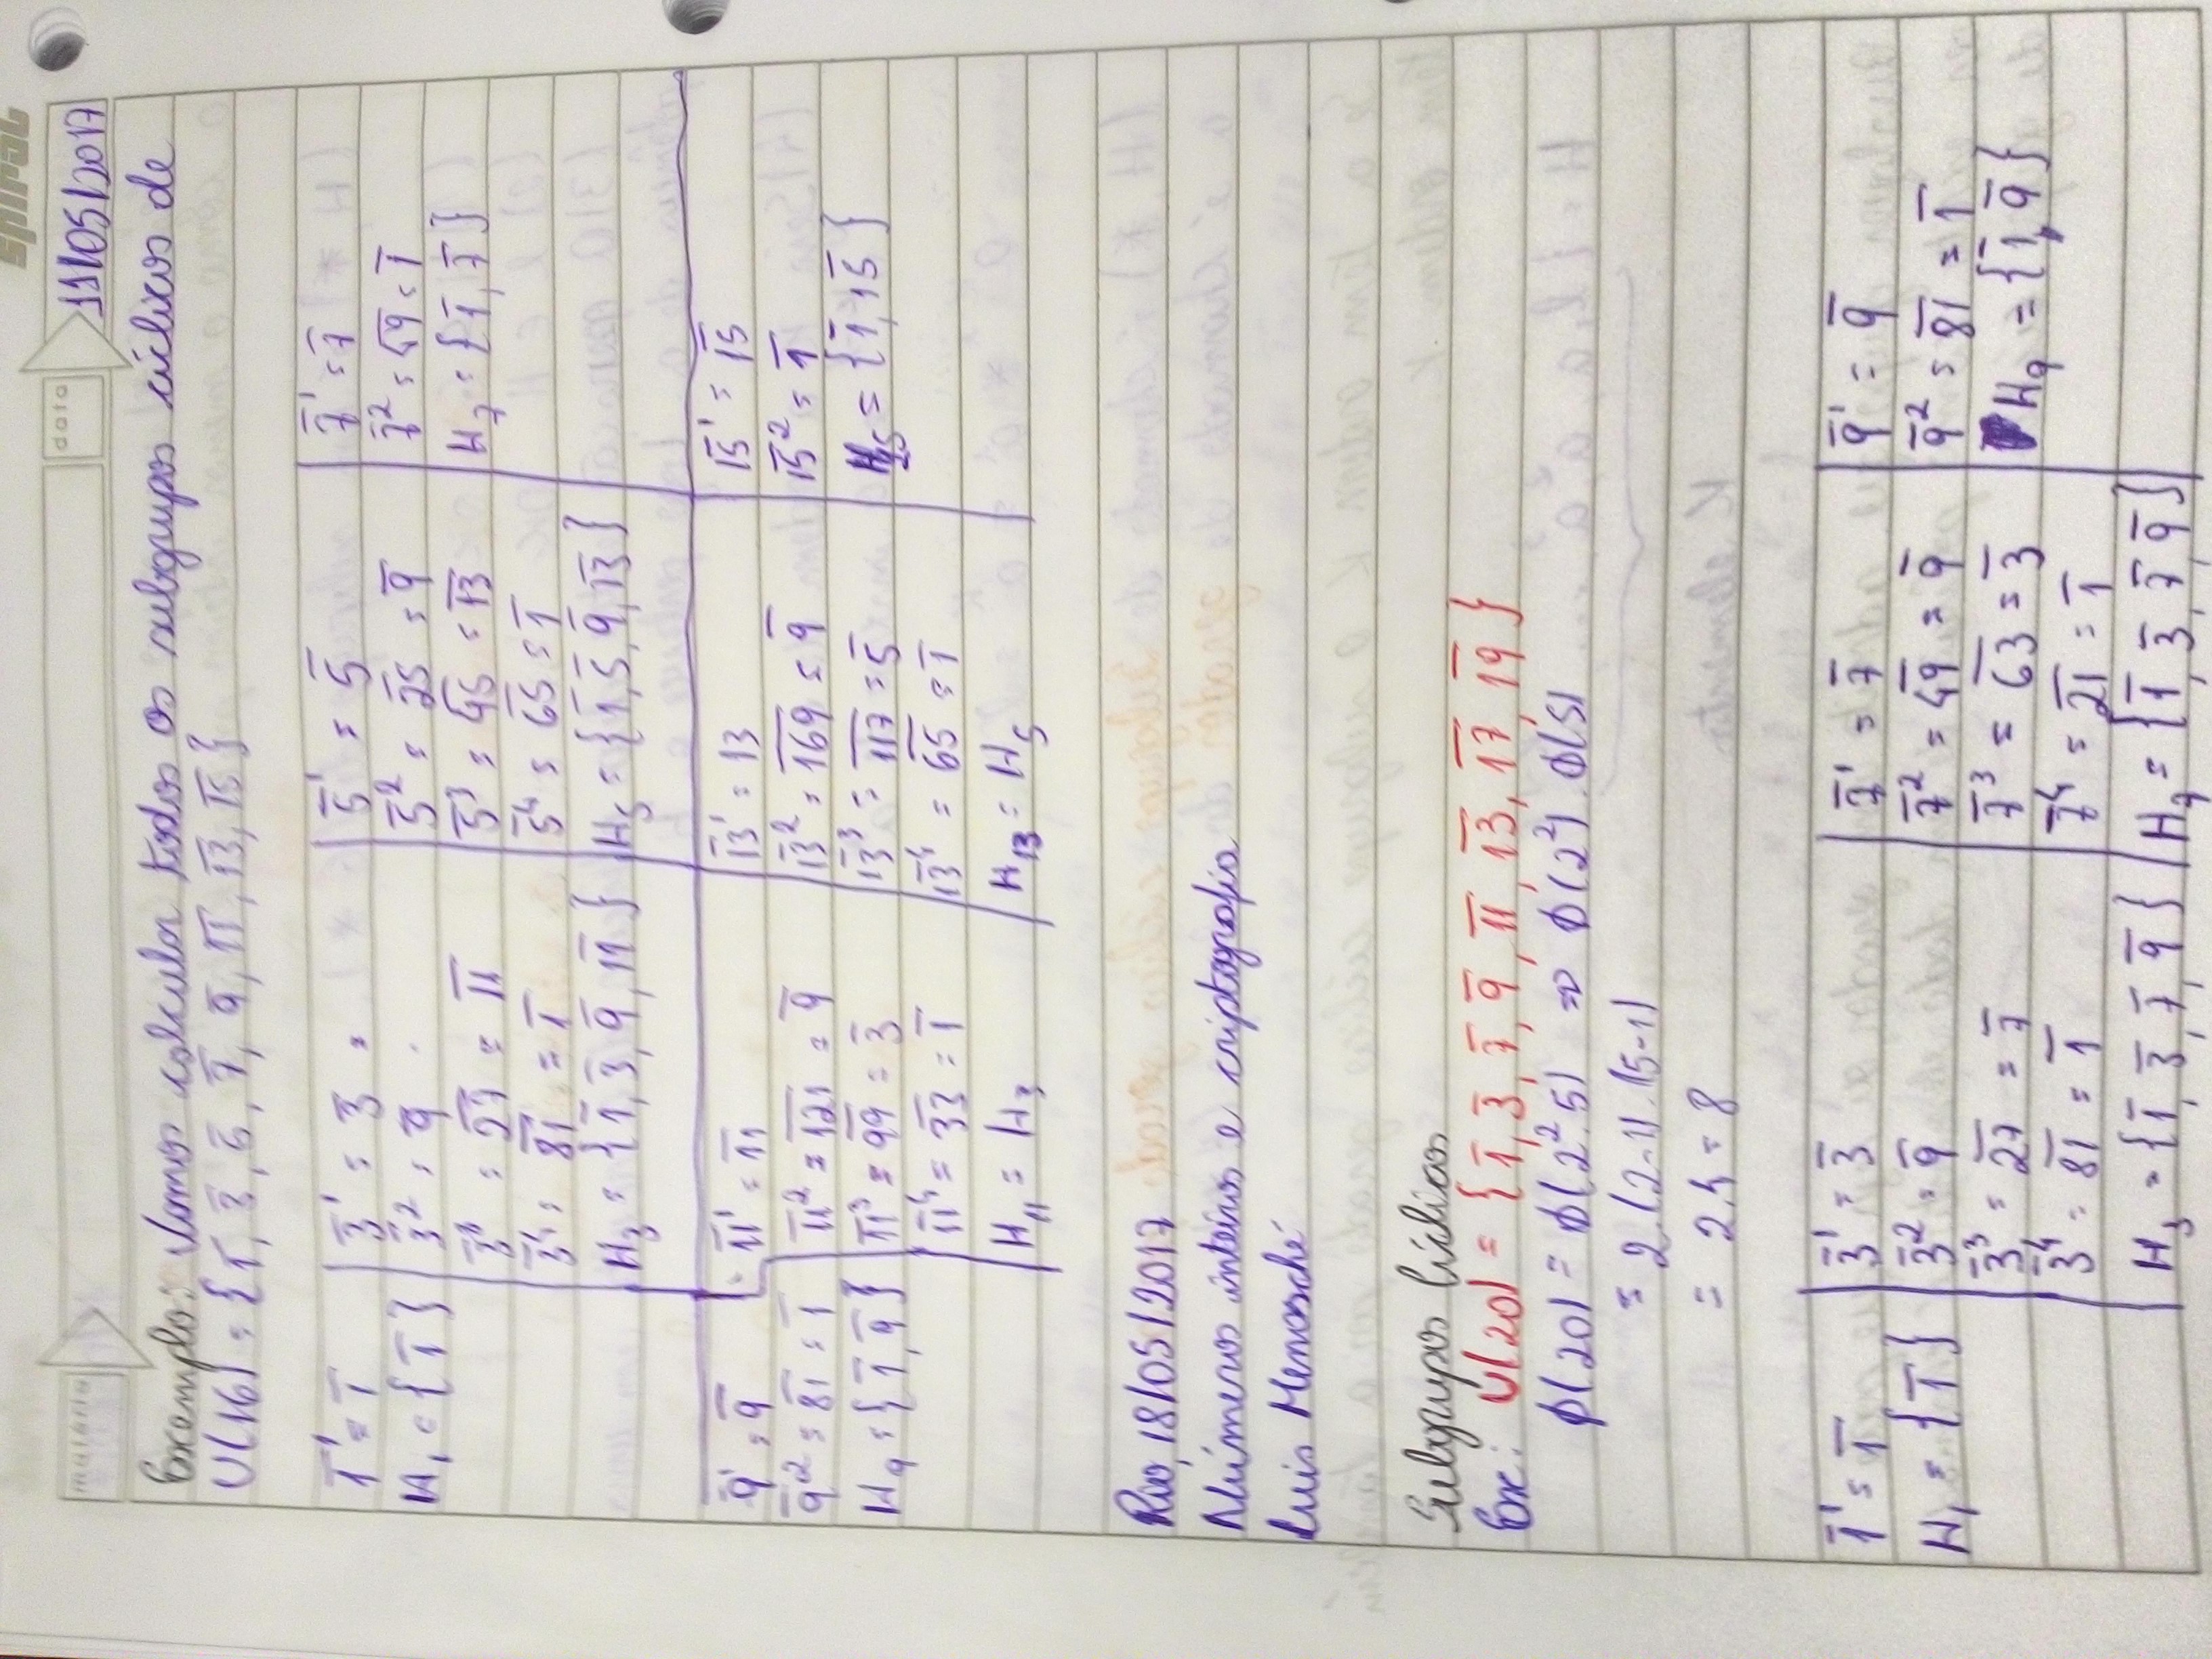 spiral
matéria
data
11/05/2017
Exemplo: Vamos calcular todos os subgrupos cíclicos de
U(16) = {1̅, 3̅, 5̅, 7̅, 9̅, 1̅1̅, 1̅3̅, 1̅5̅}
1̅¹ = 1̅
H₁ = {1̅}
3̅¹ = 3̅
3̅² = 9̅
3̅³ = 2̅7̅ = 1̅1̅
3̅⁴ = 8̅1̅ = 1̅
H₃ = {1̅, 3̅, 9̅, 1̅1̅}
5̅¹ = 5̅
5̅² = 2̅5̅ = 9̅
5̅³ = 4̅5̅ = 1̅3̅
5̅⁴ = 6̅5̅ = 1̅
H₅ = {1̅, 5̅, 9̅, 1̅3̅}
7̅¹ = 7̅
7̅² = 4̅9̅ = 1̅
H₇ = {1̅, 7̅}
9̅¹ = 9̅
9̅² = 8̅1̅ = 1̅
H₉ = {1̅, 9̅}
1̅1̅¹ = 1̅1̅
1̅1̅² = 1̅2̅1̅ = 9̅
1̅1̅³ = 9̅9̅ = 3̅
1̅1̅⁴ = 3̅3̅ = 1̅
H₁₁ = H₃
1̅3̅¹ = 13
1̅3̅² = 1̅6̅9̅ = 9̅
1̅3̅³ = 1̅1̅7̅ = 5̅
1̅3̅⁴ = 6̅5̅ = 1̅
H₁₃ = H₅
1̅5̅¹ = 1̅5̅
1̅5̅² = 1̅
H₁₅ = {1̅, 1̅5̅}
Rio, 18/05/2017
Números inteiros e criptografia
Luis Menasché
Subgrupos Cíclicos
Ex: U(20) = {1̅, 3̅, 7̅, 9̅, 1̅1̅, 1̅3̅, 1̅7̅, 1̅9̅}
ϕ(20) = ϕ(2².5) ⇒ ϕ(2²).ϕ(5)
= 2.(2-1).(5-1)
= 2.4 = 8
1̅¹ = 1̅
H₁ = {1̅}
3̅¹ = 3̅
3̅² = 9̅
3̅³ = 2̅7̅ = 7̅
3̅⁴ = 8̅1̅ = 1̅
H₃ = {1̅, 3̅, 7̅, 9̅}
7̅¹ = 7̅
7̅² = 4̅9̅ = 9̅
7̅³ = 6̅3̅ = 3̅
7̅⁴ = 2̅1̅ = 1̅
H₇ = {1̅, 3̅, 7̅, 9̅}
9̅¹ = 9̅
9̅² = 8̅1̅ = 1̅
H₉ = {1̅, 9̅}